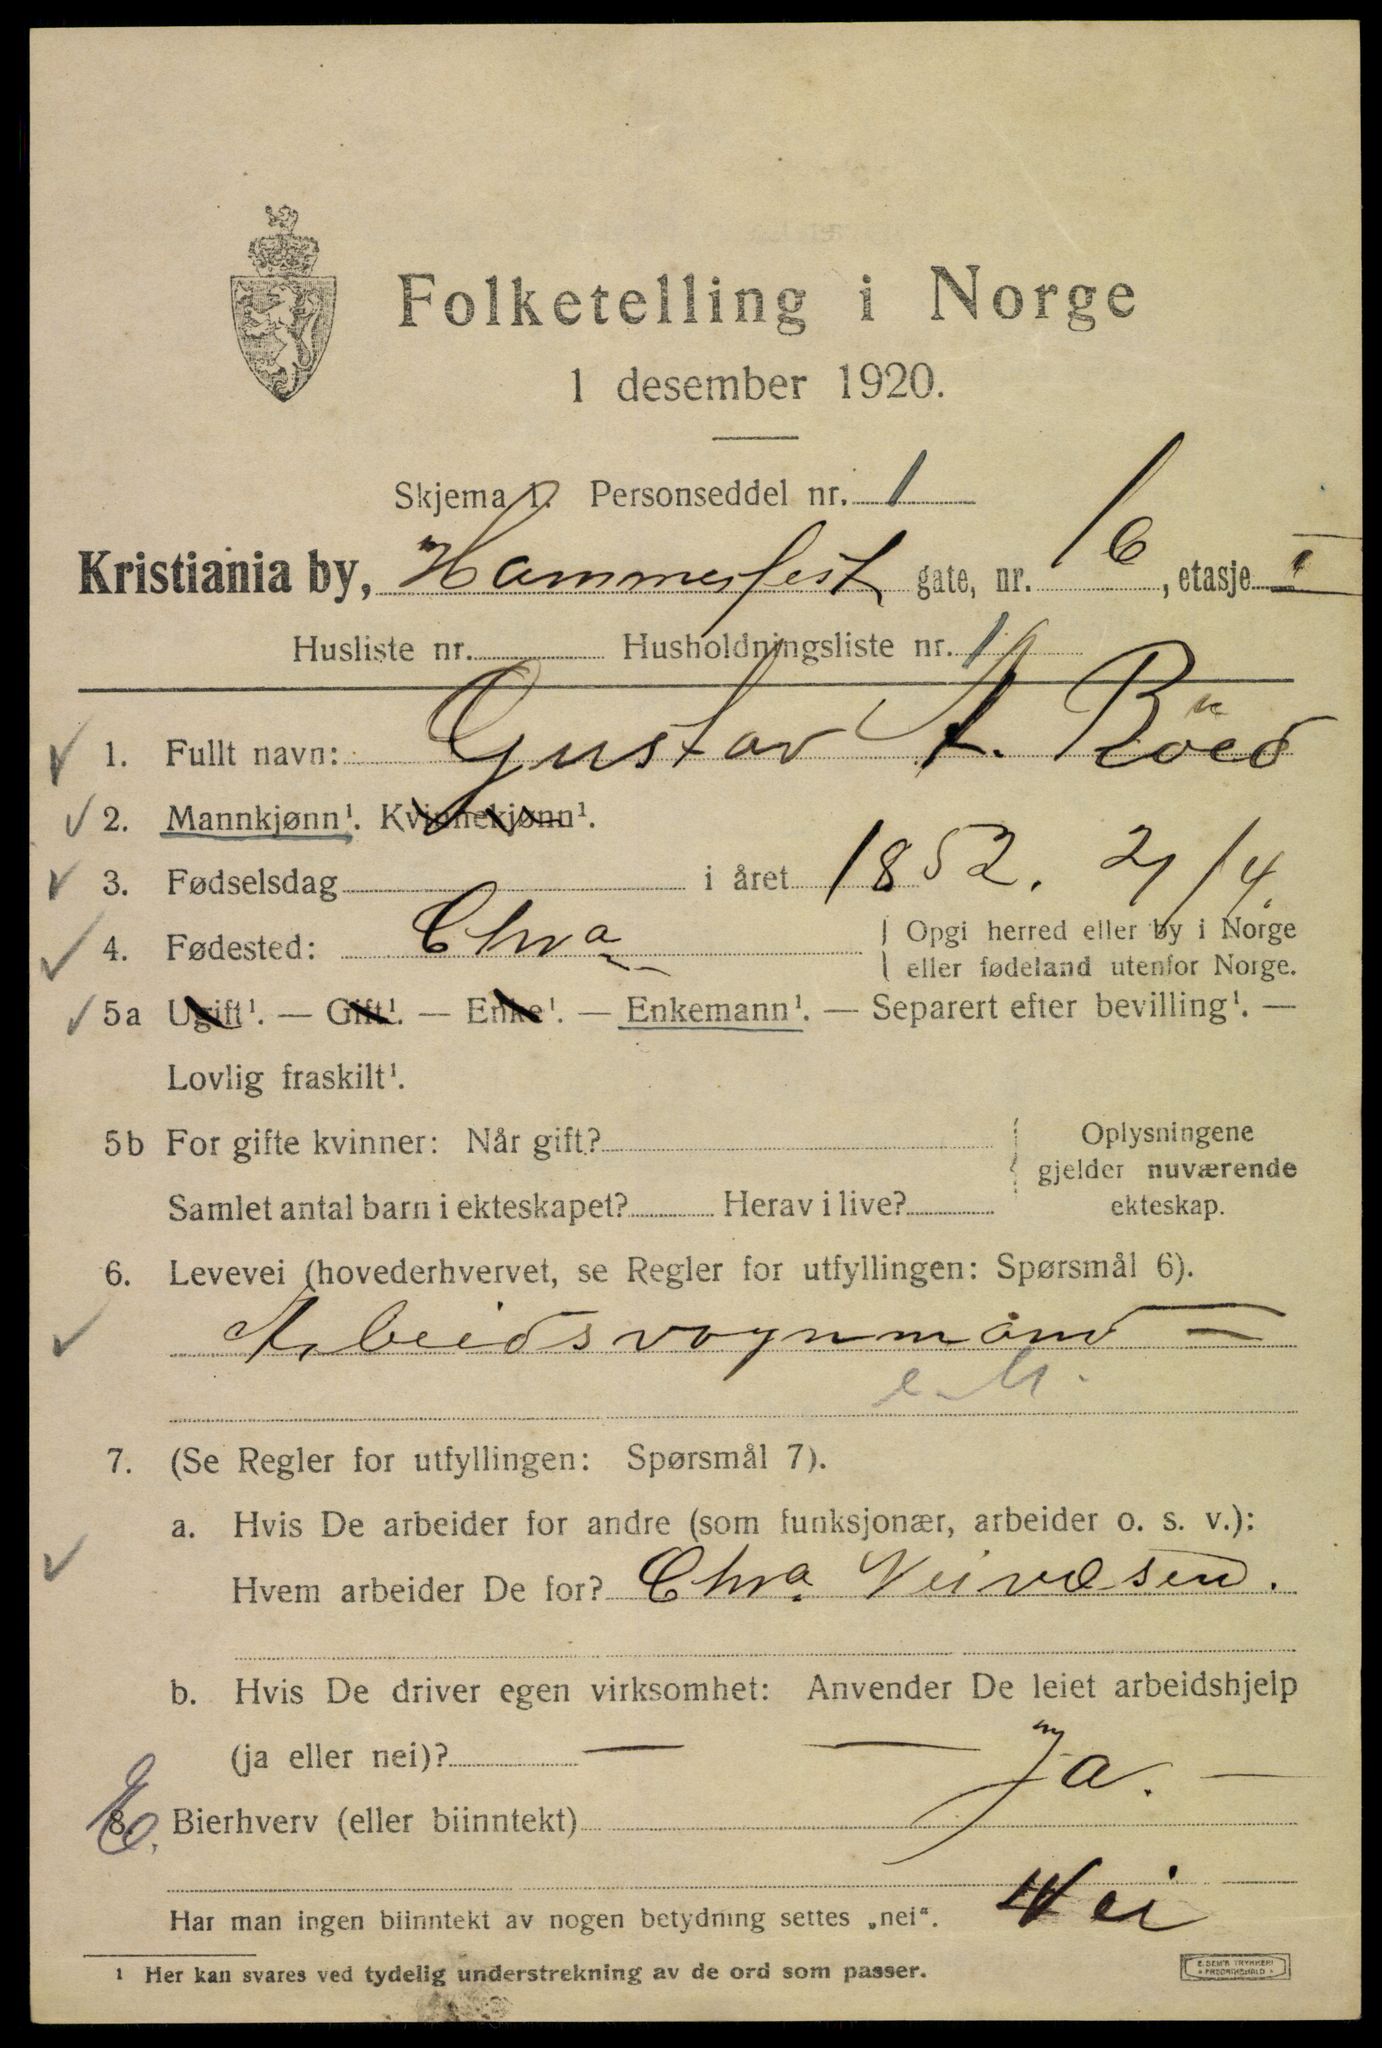 Folketelling i Norge
1 desember 1920.
Skjema 1. Personseddel nr. 1
Kristiania by, Hammerfest gate, nr. 6, etasje I
Husliste nr. Husholdningsliste nr. 1
1. Fullt navn: Gustav A. Röed
2. Mannkjønn¹. Kvinnekjønn¹.
3. Fødselsdag i året 1852. 2/4.
4. Fødested: Chra Opgi herred eller by i Norge
eller fødeland utenfor Norge.
5a Ugift¹. — Gift¹. — Enke¹. — Enkemann¹. — Separert efter bevilling¹. —
Lovlig fraskilt¹.
5b For gifte kvinner: Når gift? Oplysningene
gjelder nuværende
Samlet antal barn i ekteskapet? Herav i live? ekteskap.
6. Levevei (hovederhvervet, se Regler for utfyllingen: Spørsmål 6).
Arbeidsvognmand —
7. (Se Regler for utfyllingen: Spørsmål 7).
a. Hvis De arbeider for andre (som funksjonær, arbeider o. s. v.):
Hvem arbeider De for? Chra Veivæsen.
b. Hvis De driver egen virksomhet: Anvender De leiet arbeidshjelp
(ja eller nei)? — — Ja. —
8. Bierhverv (eller biinntekt)
Har man ingen biinntekt av nogen betydning settes „nei“. Nei
¹ Her kan svares ved tydelig understrekning av de ord som passer.
E. SEM'S TRYKKERI
FREDRIKSHALD